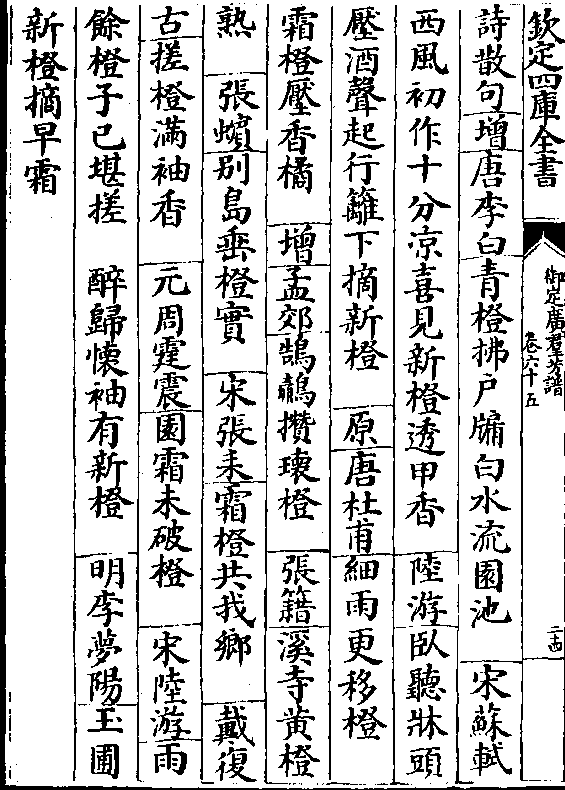 欽定四庫全書
御定廣羣芳譜
卷六十五
二十四
詩散句增唐李白青橙拂戶牖白水流園池　宋蘇軾
西風初作十分凉喜見新橙透甲香　陸游臥聽牀頭
壓酒聲起行籬下摘新橙　原唐杜甫細雨更移橙
霜橙壓香橘　增孟郊鵠鷸攢瓌橙　張籍溪寺黃橙
熟　張蠙別島垂橙實　宋張耒霜橙共我鄉　戴復
古搓橙滿袖香　元周霆震園霜未破橙　宋陸游雨
餘橙子已堪搓　醉歸懷袖有新橙　明李夢陽玉圃
新橙摘早霜